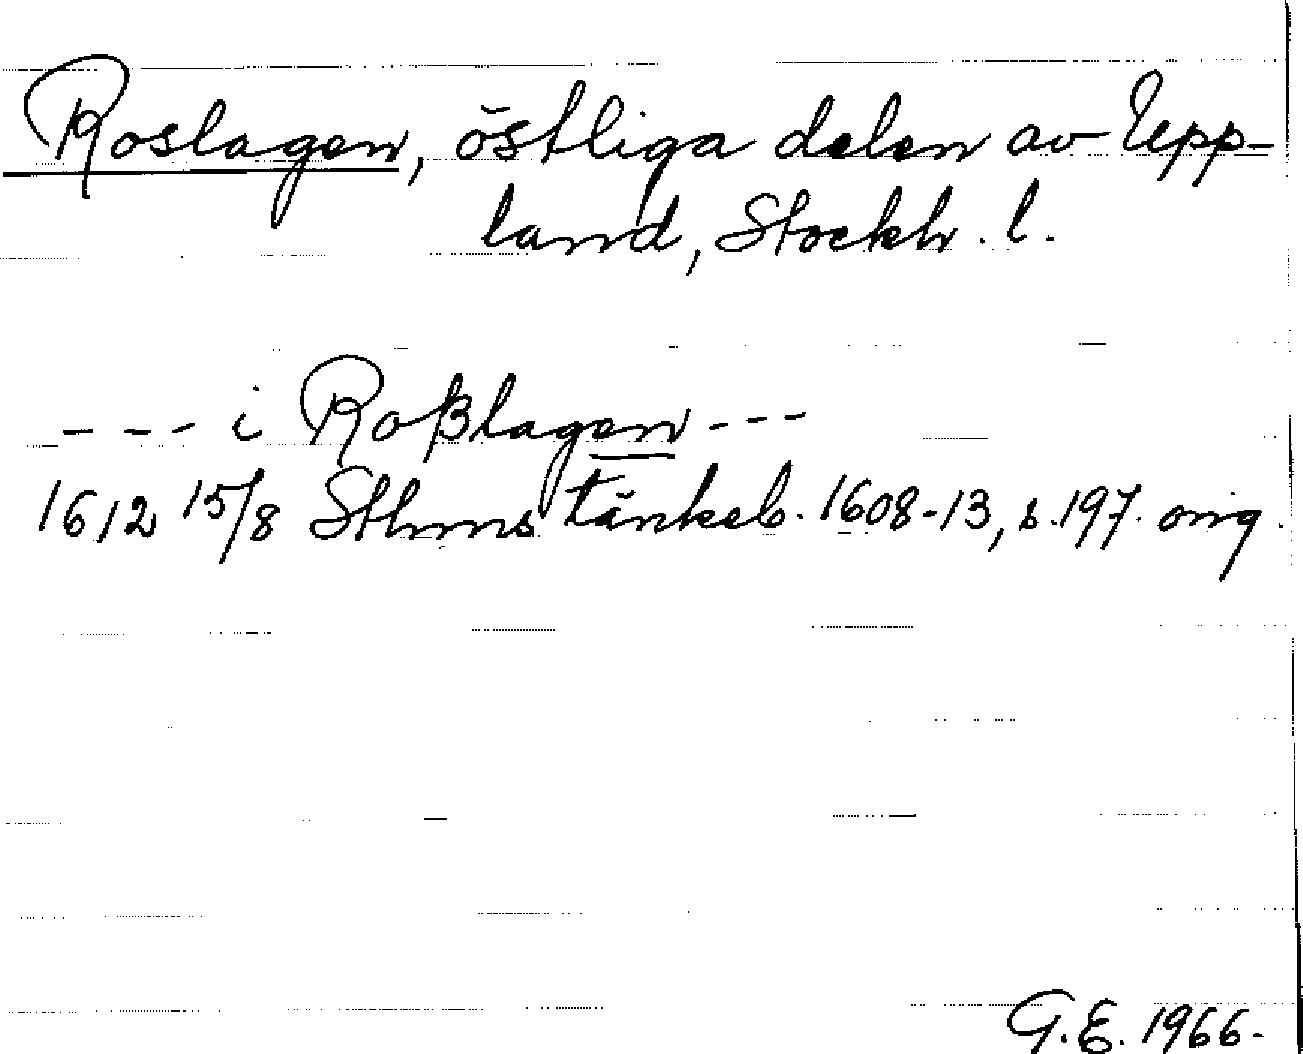 Roslagen, östliga delen av Upp-
land, Stockh. l.
--- i Roßlagen ---
1612 15/8 Sthms tänkeb. 1608-13, s. 197. orig.
G.E. 1966.